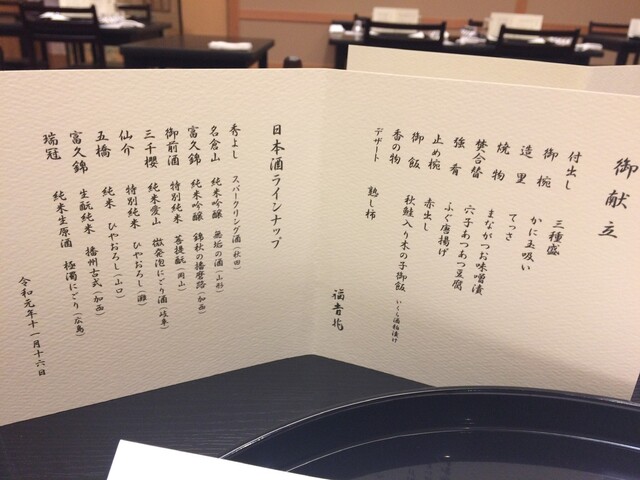 御献立
付出し 三種盛
御椀 かに玉吸い
造里 てっさ
焼物 まながつお味噌漬
焚合替 穴子あつあつ豆腐
強肴 ふぐ唐揚げ
止め椀 赤出し
御飯 秋鮭入り木の子御飯 いくら酒粕漬け
香の物
デザート 熟し柿
日本酒ラインナップ
秀よし スパークリング酒(秋田)
名倉山 純米吟醸 無垢の酒(山形)
富久錦 純米吟醸 錦秋の播磨路(加西)
御前酒 特別純米 菩提酛(岡山)
三千櫻 純米愛山 微発泡にごり酒(岐阜)
仙介 特別純米 ひやおろし(灘)
五橋 純米 ひやおろし(山口)
富久錦 生酛純米 播州古式(加西)
瑞冠 純米生原酒 極濁にごり(広島)
令和元年十一月十六日